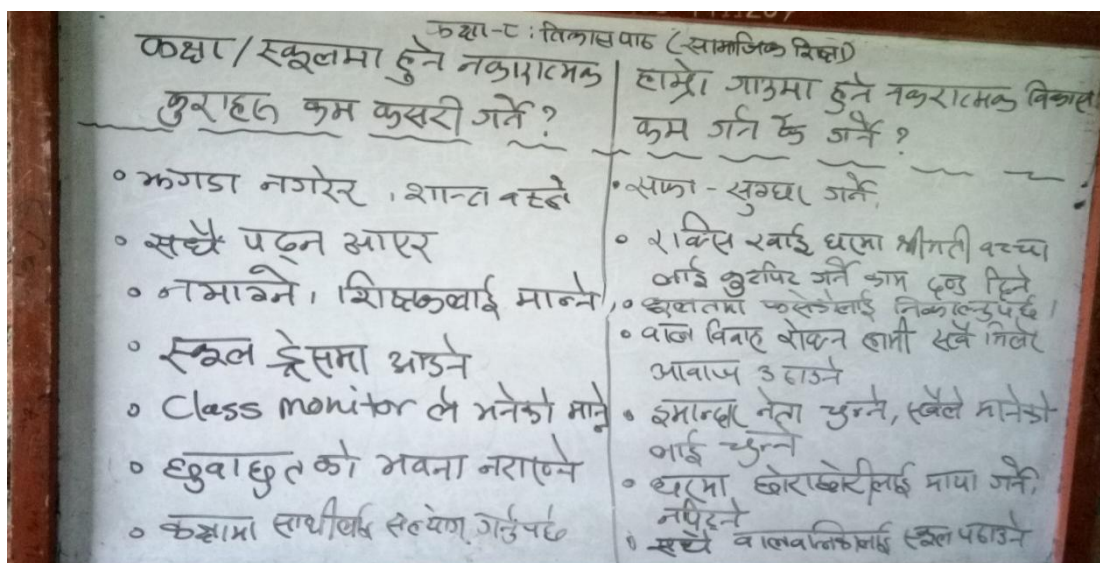 कक्षा-८ : विकास पाठ (सामाजिक शिक्षा)
कक्षा/स्कूलमा हुने नकारात्मक
कुराहरु कम कसरी गर्ने ?
• झगडा नगरेर, शान्त बस्ने
• सधै पढ्न आएर
• नभाग्ने, शिक्षकलाई मान्ने,
• स्कूल ड्रेसमा आउने
• Class monitor ले भनेको मान्ने
• छुवाछुत को भवना नराख्ने
• कक्षामा साथीलाई सहयोग गर्नुपर्छ
हाम्रो गाउमा हुने नकरात्मक विकास
कम गर्न के गर्ने ?
• साफा - सुग्घर गर्ने,
• रक्सि खाई घरमा श्रीमती बच्चा
लाई कुटपिट गर्ने काम दण्ड दिने
• फसेकोलाई निकाल्नुपर्छ ।
• बाल विवाह रोक्न हामी सबै मिलेर
आवाज उठाउने
• इमान्दार नेता चुन्ने, सबैले मानेको
लाई चुन्ने
• घरमा छोराछोरीलाई माया गर्ने,
नपिट्ने
• सधै बालबालिकालाई स्कूल पठाउने